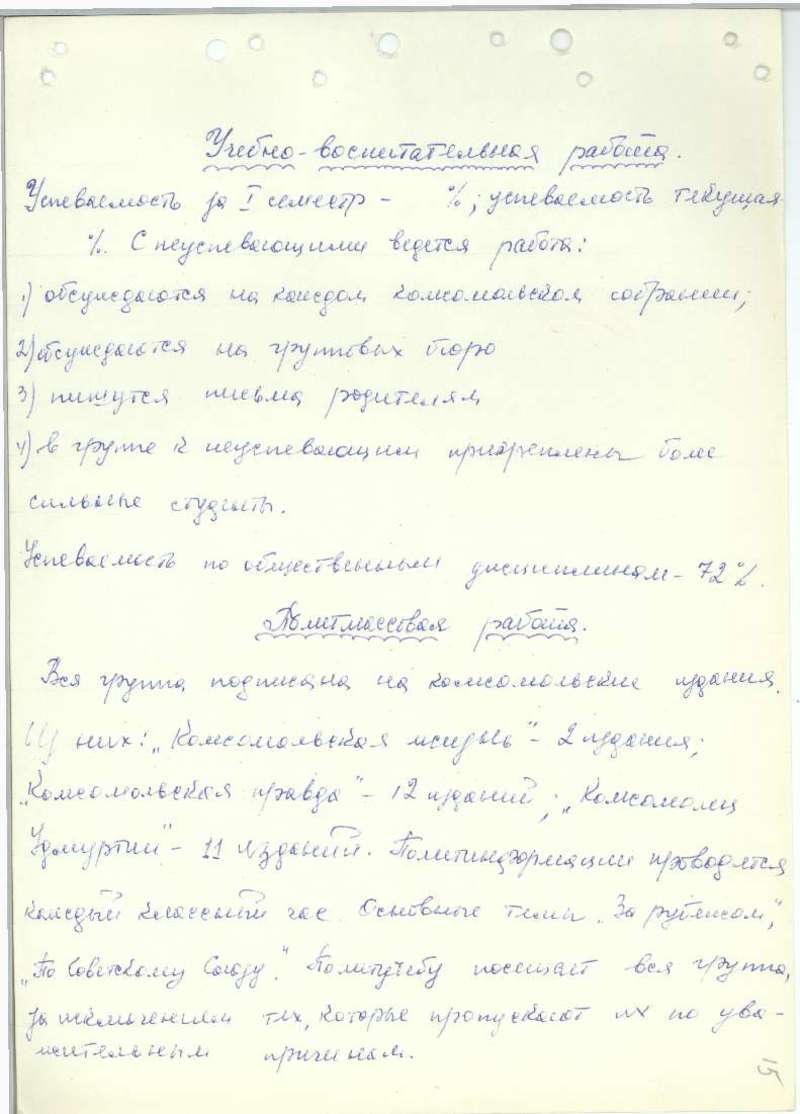 Учебно-воспитательная работа.
Успеваемость за I семестр - %; успеваемость текущая
%. С неуспевающими ведется работа:
1) обсуждаются на каждом комсомольском собрании;
2) обсуждаются на групповых бюро
3) пишутся письма родителям
4) в группе к неуспевающим прикреплены более
сильные студенты.
Успеваемость по общественным дисциплинам - 72%.
Политмассовая работа.
Вся группа подписана на комсомольские издания.
Из них: „Комсомольская жизнь" - 2 издания;
„Комсомольская правда" - 12 изданий; „Комсомолец
Удмуртии" - 11 изданий. Политинформации проводятся
каждый классный час. Основные темы „За рубежом",
„По Советскому Союзу". Политучебу посещает вся группа,
за исключением тех, которые пропускают их по ува-
жительным причинам.
15